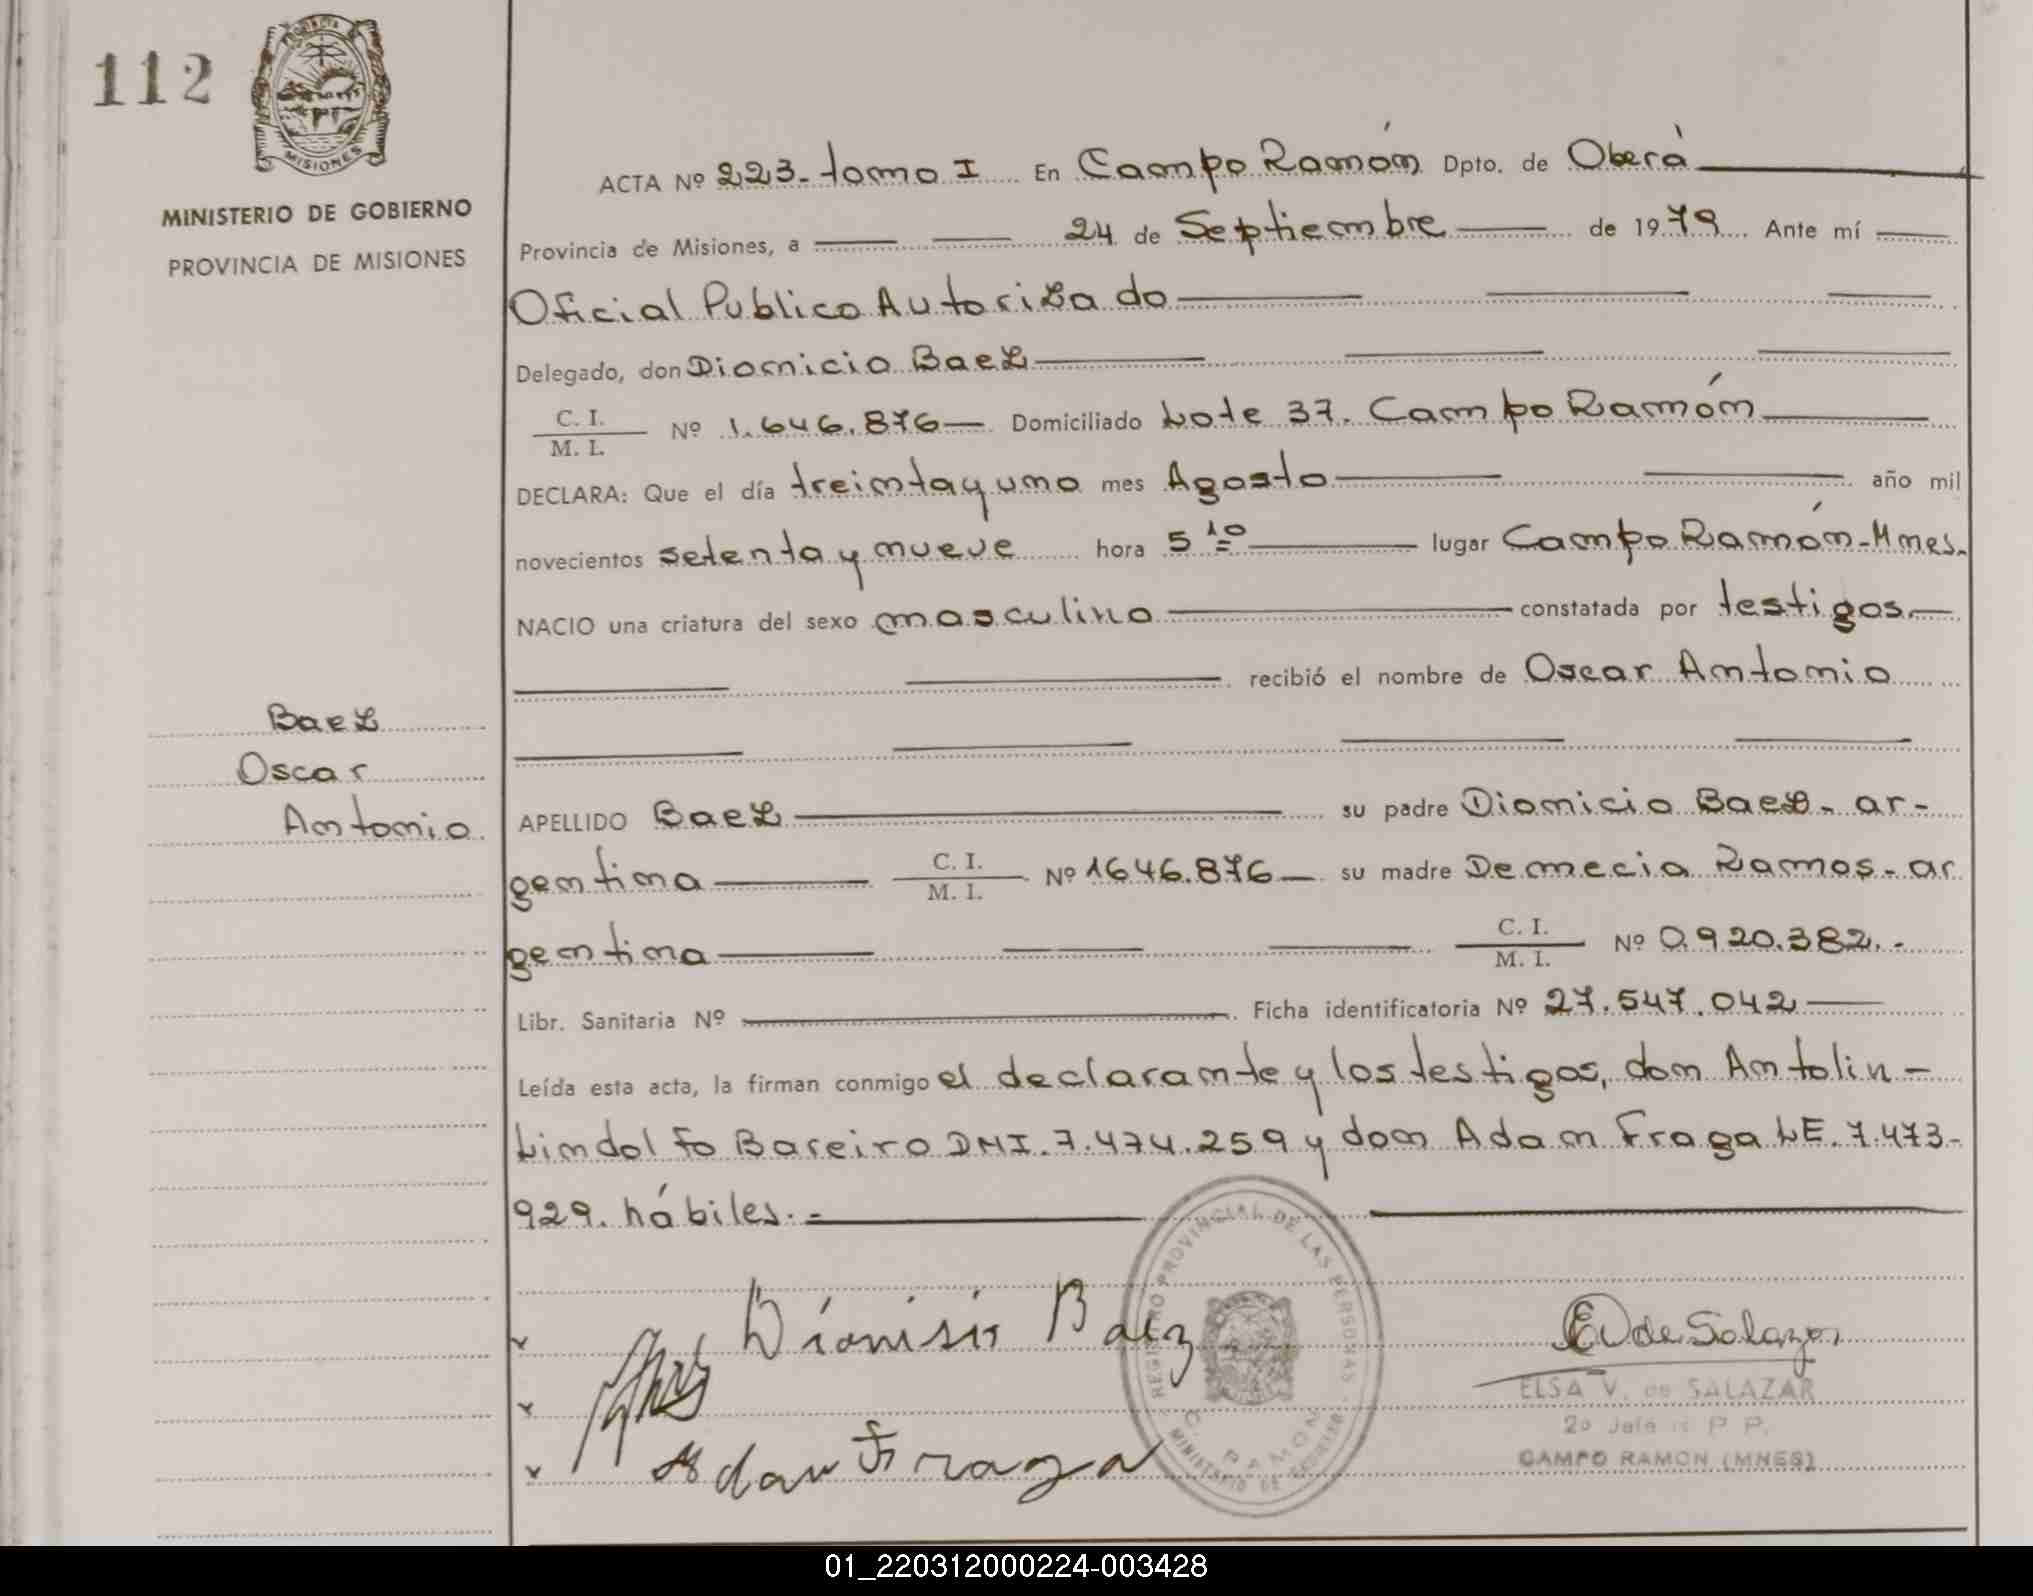 112
MISIONES
MINISTERIO DE GOBIERNO
PROVINCIA DE MISIONES
Baez
Oscar
Antonio
ACTA Nº 223-tomo I En Campo Ramón Dpto. de Oberá
Provincia de Misiones, a 24 de Septiembre de 1979 Ante mí
Oficial Publico Autorizado
Delegado, don Dionicio Baez
C. I.
M. I. Nº 1.646.876 Domiciliado Lote 37. Campo Ramón
DECLARA: Que el día treinta y uno mes Agosto año mil
novecientos setenta y nueve hora 5 10 lugar Campo Ramón-Mnes.
NACIO una criatura del sexo masculino constatada por testigos
recibió el nombre de Oscar Antonio
APELLIDO Baez su padre Dionicio Baez - ar-
gentina C. I.
M. I. Nº 1646.876 su madre Demecia Ramos - ar
gentina C. I.
M. I. Nº 0.920.382.-
Libr. Sanitaria Nº Ficha identificatoria Nº 27.547.042
Leída esta acta, la firman conmigo el declarante y los testigos, don Antolin-
Lindolfo Bareiro DNI. 7.474.259 y don Adan Fraga LE. 7.473-
929. hábiles.-
Dionisio Baez
Adan Fraga
REGISTRO PROVINCIAL DE LAS PERSONAS
C. RAMON
MINISTERIO DE GOBIERNO
E V de Salazar
ELSA V. de SALAZAR
CAMPO RAMON (MNES)
01_220312000224-003428